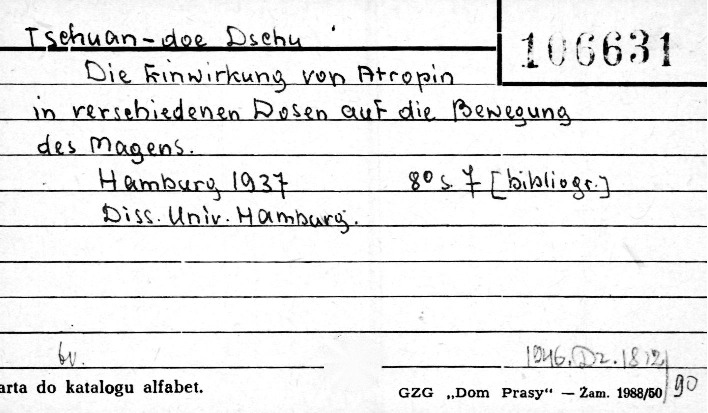 Tschuan-doe Dschu
106631
Die Einwirkung von Atropin
in verschiedenen Dosen auf die Bewegung
des Magens.
Hamburg 1937 8° s. 7 [bibliogr.]
Diss. Univ. Hamburg.
bv.
1946. Dz. 1812/90
arta do katalogu alfabet.
GZG „Dom Prasy“ — Zam. 1988/60